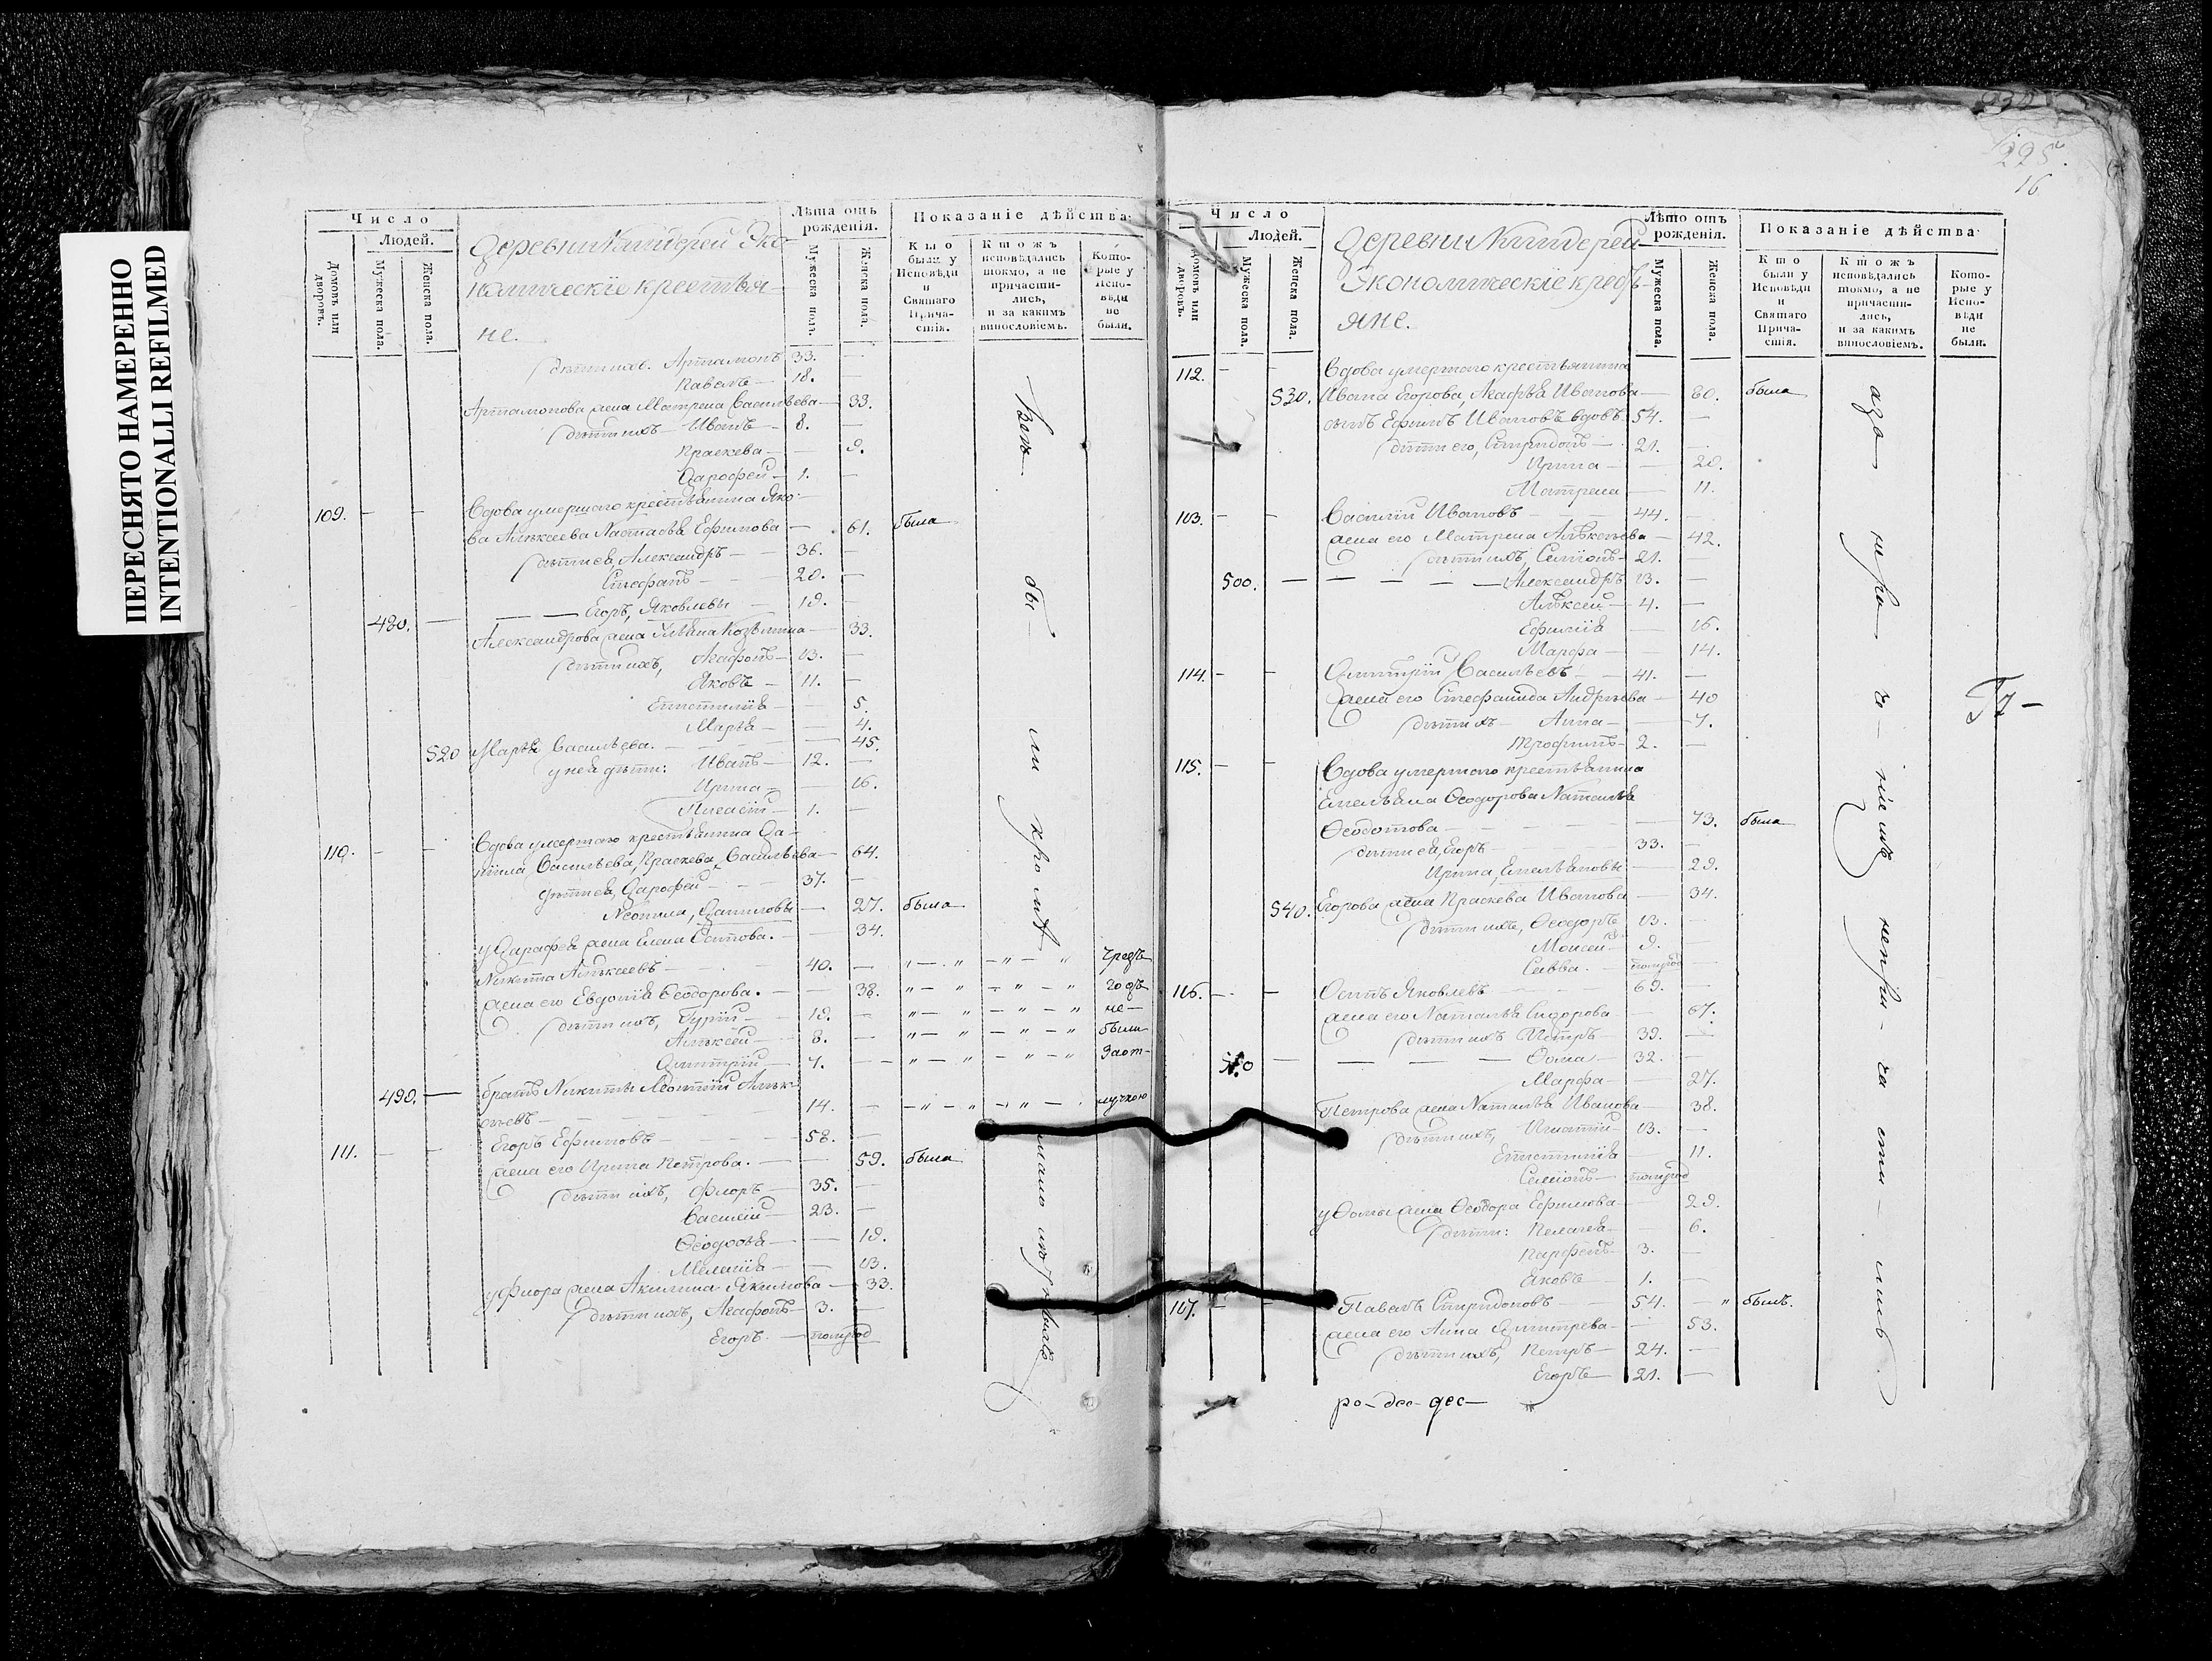 ПЕРЕСНЯТО НАМЕРЕННО
INTENTIONALLI REFILMED
Число
Людей.
Домовъ или дворовъ.
Мужеска пола.
Женска пола.
Деревни Киндерей Эко-
номическiе крестья-
не.
Лѣта отъ рожденiя.
Мужеска пола.
Женска пола.
Показанiе дѣйства
Кто были у Исповѣди и Святаго Прича-стiя.
Ктожъ исповѣдались токмо, а не причасти-лись, и за какимъ винословiемъ.
Кото-рые у Испо-вѣди не были.
дѣти ихъ Артамонъ 33. —
Павелъ — 18.
Артамонова жена Матрена Васильева — 33.
дѣти ихъ — Иванъ — 8. —
Праскева — — 9.
Дарофей — 1. —
109. — — Вдова умершаго крестьянина Яко-
ва Алѣксеева Настасья Ефимова — 61. была
дѣти ея, Александръ — 36. —
Стефанъ — 20. —
480. — — Егоръ, Яковлевы — 19. —
Александрова жена Ульяна Козьмина — 33.
дѣти ихъ, Агафонъ — 13. —
Яковъ — 11. —
Епистилiя — — 5.
Марья — — 4.
520 Марья Васильева. — — 45.
у нея дѣти: Иванъ — 12. —
Ирина — — 16.
1. —
110. — — Вдова умершаго крестьянина Да-
нiила Васильева, Праскева Васильева — 64.
дѣти ея, Дарофей — 37. —
Неонила, Даниловы — 27. была
у Дарафея жена Елена Саттова. — 34.
Никита Алѣксеевъ — 40. — чрезъ
жена его Евдокiя Феодорова. — 38. годъ
дѣти ихъ, Гурiй — 19. — не —
Алѣксей — 8. — были
Димитрiй — 4. — За от-
490. — братъ Никиты Леонтiй Алѣк-
сѣевъ — 14. — лучкою
111. — — Егоръ Ефимовъ — 58. —
жена его Ирина Петрова. — 59. была
дѣти ихъ, Флоръ — 35. —
Василiй — 23. —
Феодосья — — 19.
Меланiя — — 13.
у Флора жена Акилина Якимова — 33.
дѣти ихъ, Агафонъ — 3. —
Егоръ — полгод
295.
16
Число
Людей.
Домовъ или дворовъ.
Мужеска пола.
Женска пола.
Деревни Киндерей
Экономическiе кресть-
яне.
Лѣто отъ рожденiя.
Мужеска пола.
Женска пола.
Показанiе дѣйства
Кто были у Исповѣди и Святаго Прича-стiя.
Ктожъ исповѣдались токмо, а не причасти-лись, и за какимъ винословiемъ.
Кото-рые у Испо-вѣди не были.
112. — — Вдова умершаго крестьянина
530. Ивана Егорова, Агафья Иванова — 60. была
сынъ Ефимъ Ивановъ вдовъ 54. —
дѣти его, Спиридонъ — 21. —
Ирина — — 20.
Матрена — 11.
103. — — Василiй Ивановъ — 44. —
жена его Матрена Алѣксѣева — 42.
дѣти ихъ, Семiонъ — 21. —
500. — — Александръ 13. —
Алѣксей — 4. —
Ефимiя — 16.
Марфа — — 14.
114. — — Димитрiй Васильевъ — 41. —
жена его Стефанида Андрѣева — 40
дѣти ихъ — Анна — 7.
Трофимъ — 2. —
115. — — Вдова умершаго крестьянина
Емельяна Феодорова Наталья
Феодотова — — 73. была
дѣти ея, Егоръ — 33. —
Ирина, Емельяновы — 29.
540. Егорова жена Праскева Иванова — 34.
дѣти ихъ, Феодоръ 13. —
Моисей — 9. —
Савва. — полгод —
116. — — Осипъ Яковлевъ — 69. —
жена его Наталья Сидорова — 67.
дѣти ихъ Петръ — 39. —
510 — — Фома — 32. —
Марфа — — 27.
Петрова жена Наталья Иванова — 38.
дѣти ихъ, Игнатiй — 13. —
Епистимiя — 11.
Семiонъ — полгод
у Фомы жена Феодора Ефимова — 29.
дѣти: Пелагея — 6.
Парфенъ — 3. —
Яковъ — 1. —
117. — — Павелъ Спиридоновъ — 54. — былъ.
жена его Анна Димитрева — 53.
дѣти ихъ, Петръ — 24. —
Егоръ — 21. —